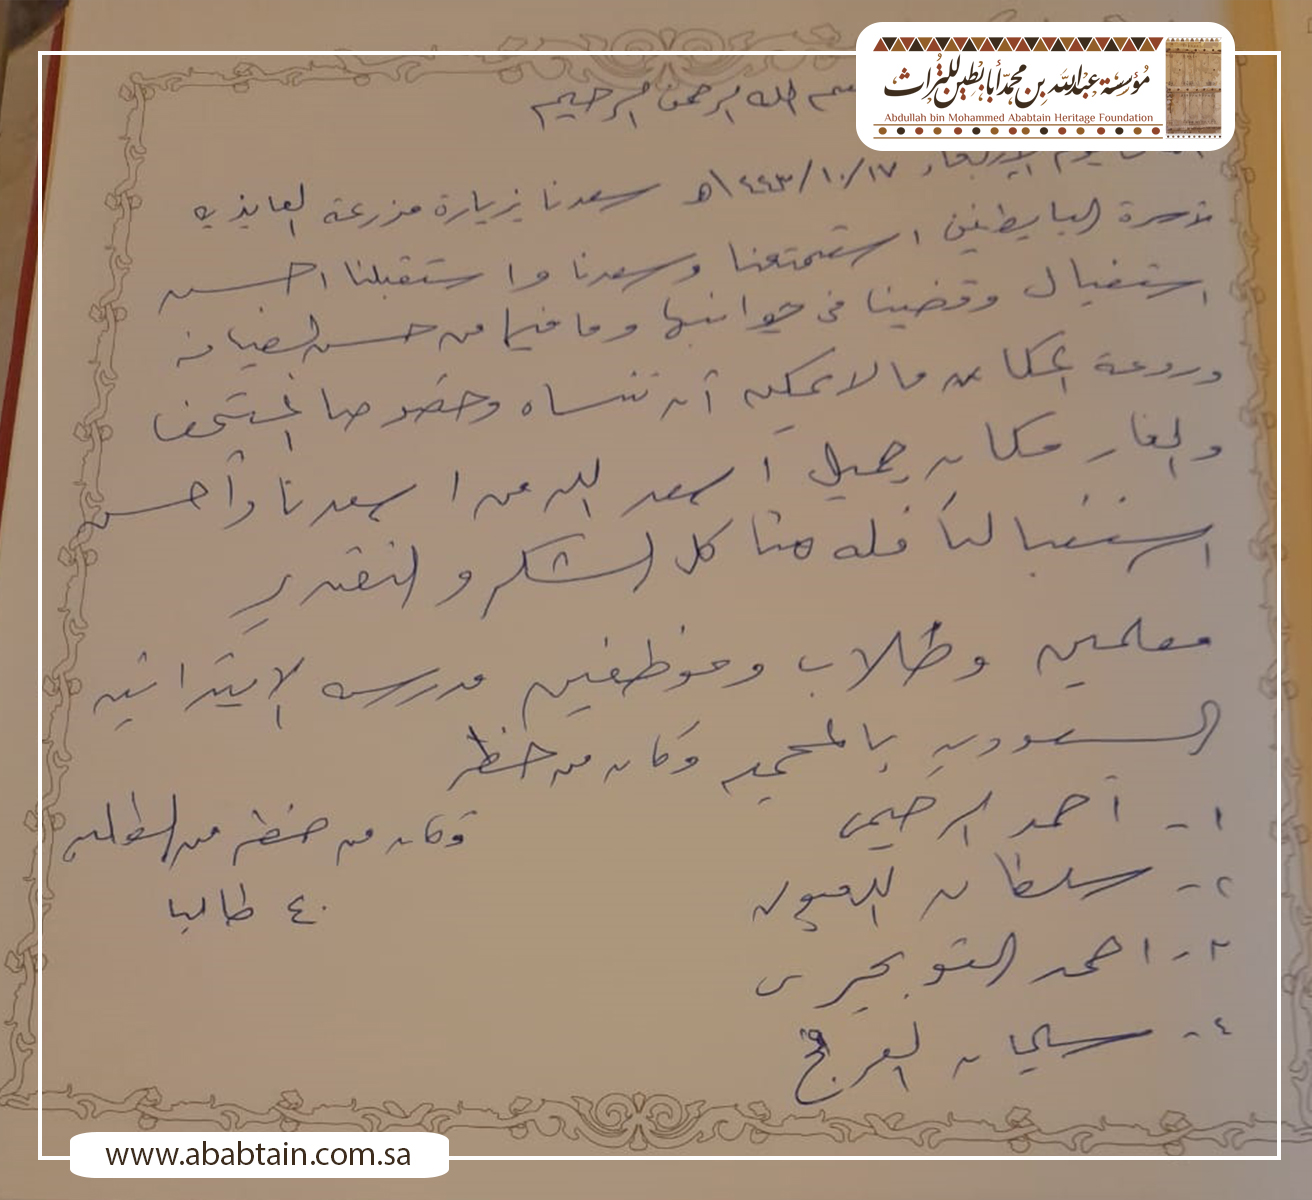 مؤسسة عبدالله بن محمد أبابطين للتراث
Abdullah bin Mohammed Ababtain Heritage Foundation
بسم الله الرحمن الرحيم
يوم الاربعاء ١٤٤٣/١٠/١٧هـ سعدنا بزيارة مزرعة العايذيه
لأسرة البابطين استمتعنا وسعدنا واستقبلنا احسن
استقبال وقضينا في جوانبها وما فيها من حسن الضيافه
وروعة المكان ما لا يمكن أن ننساه وخصوصا المتحف
والغار مكان جميل أسعد الله من اسعدنا وأحسن
استقبالنا فله منا كل الشكر والتقدير
معلمين وطلاب وموظفين مدرسه الابتدائيه
السعوديه بالمجمعه وكان من حظر
١- أحمد الرخيمي
٢- سلطان
٣- احمد التويجري
٤- سليمان الفرج
وكان من حظر من الطلبه
٤٠ طالبا
www.ababtain.com.sa